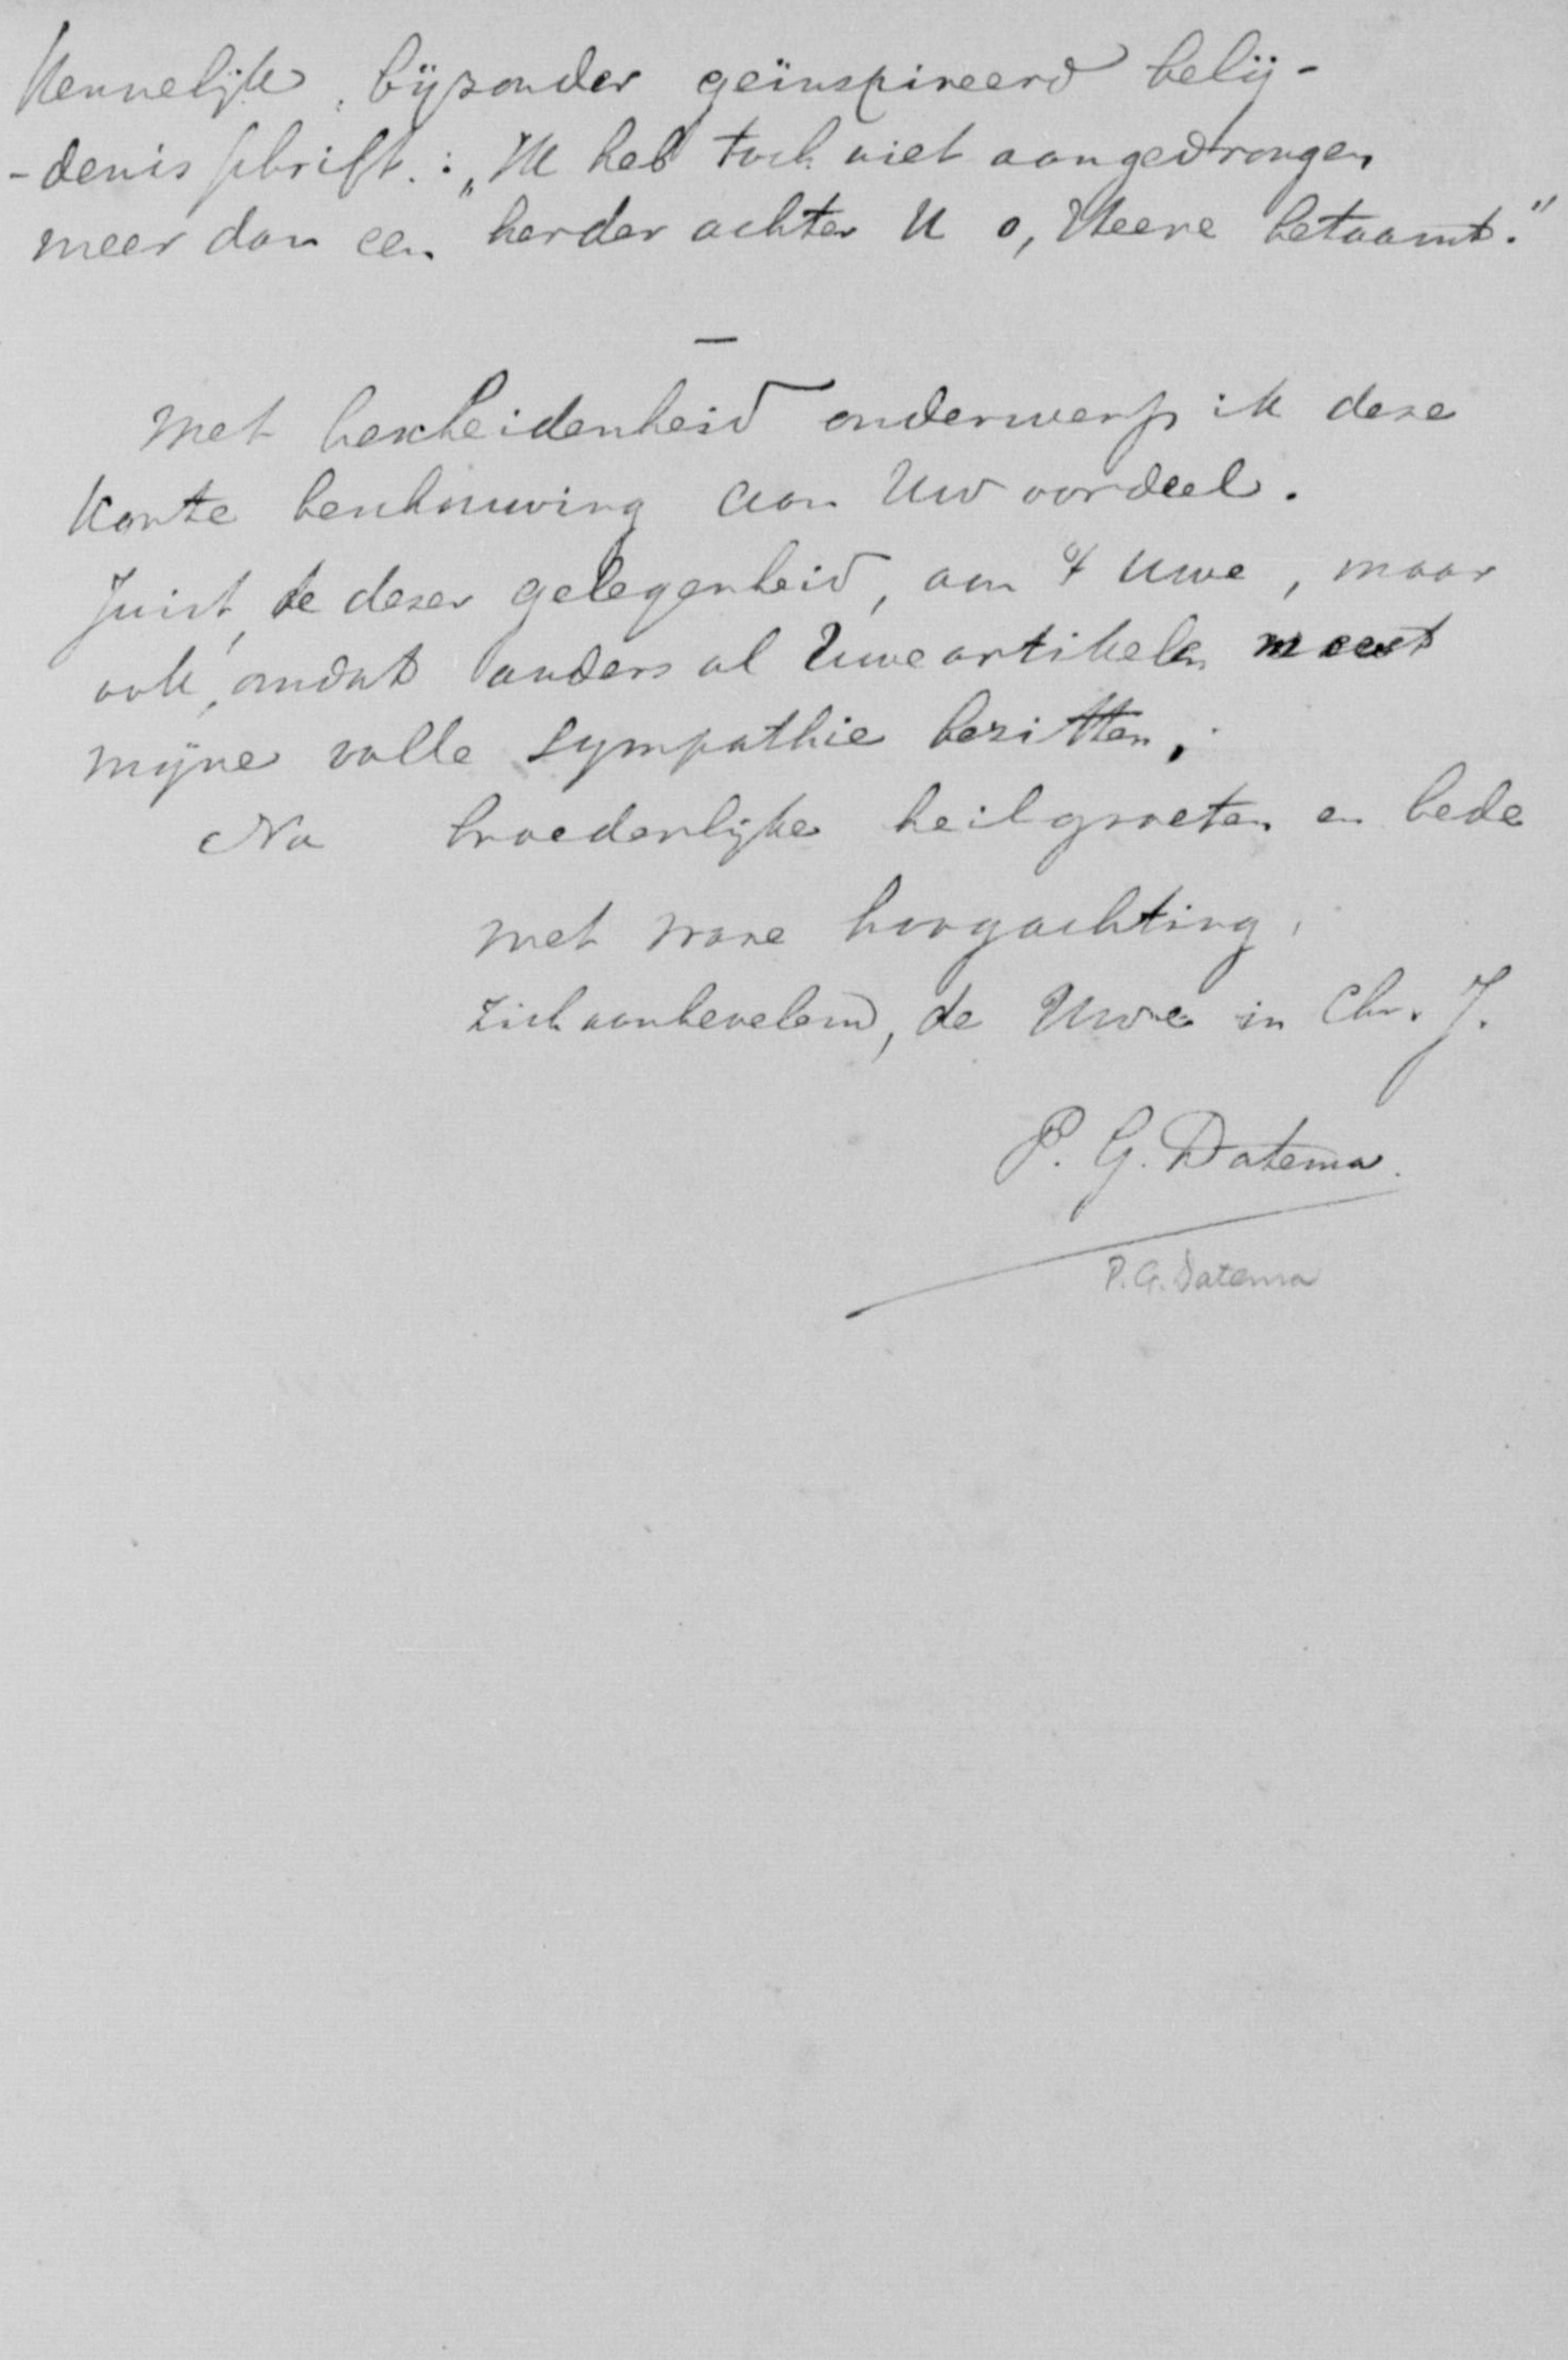 Kennelijk, bijzonder geïnspireerd belij-
-denis schrift.: „Ik heb toch niet aangedrongen
meer dan een herder achter U o, Heere betaamt."
—
Met bescheidenheid onderwerp ik deze
korte beschouwing aan Uw oordeel.
Juist, te dezer gelegenheid, om 't Uwe, maar
ook, omdat anders al Uwe artikelen meest
mijne volle sympathie bezitten.
Na broederlijke heilgroeten en bede
met ware hoogachting,
zich aanbevelend, de Uwe in Chr. J.
P. G. Datema.
P.G. Datema